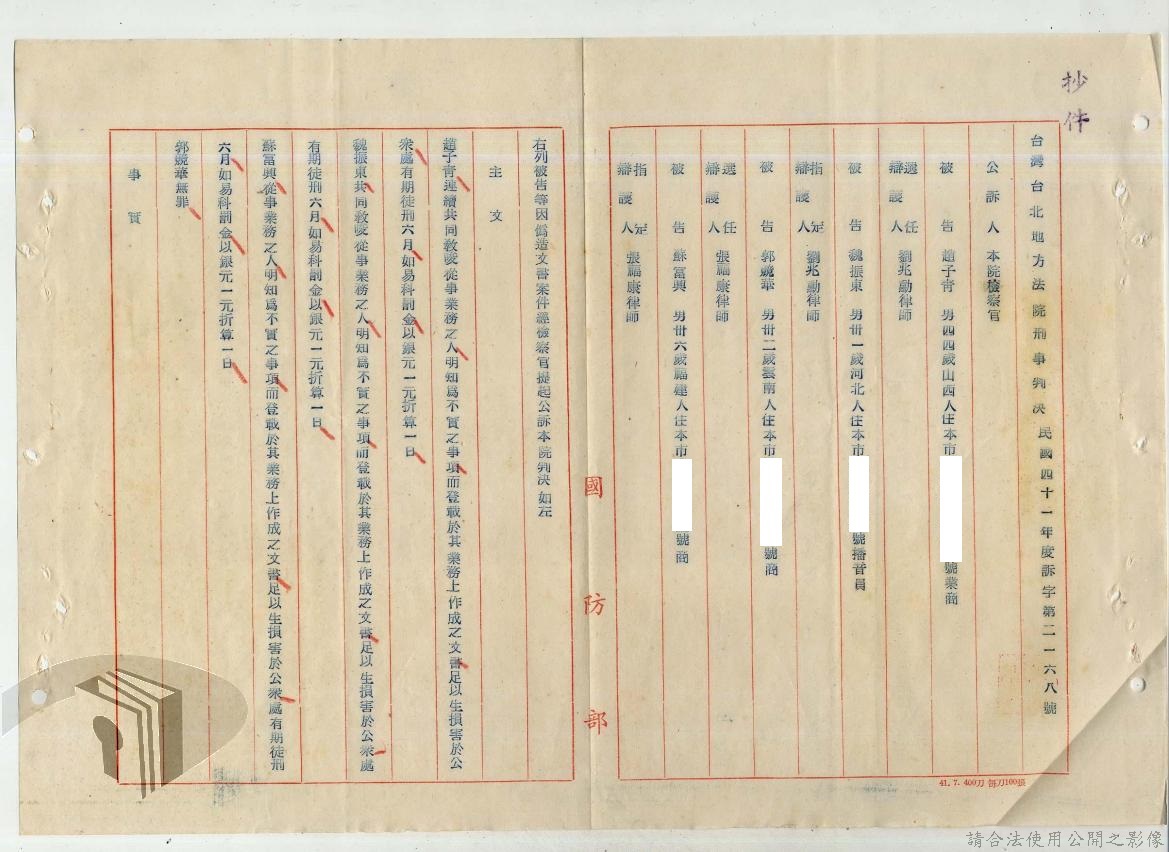 抄件
台灣台北地方法院刑事判決民國四十一年度訴字第二一六八號
公訴人本院檢察官
被告趙子青男四四歲山西人住本市
號業商
選任辯護人劉兆勳律師
被告魏振東男卅一歲河北人住本市
號播音員
指定辯護人劉兆勳律師
被告郭兢華男卅二歲雲南人住本市
號商
選任辯護人張福康律師
被告蘇富興男卅六歲福建人住本市
號商
指定辯護人張福康律師
國防部
右列被告等因偽造文書案件經檢察官提起公訴本院判決如左
主文
趙子青連續共同教唆從事業務之人明知爲不實之事項而登載於其業務上作成之文書足以生損害於公
衆處有期徒刑六月如易科罰金以銀元一元折算一日
魏振東共同教唆從事業務之人明知爲不實之事項而登載於其業務上作成之文書足以生損害於公衆處
有期徒刑六月如易科罰金以銀元一元折算一日
蘇富興從事業務之人明知爲不實之事項而登載於其業務上作成之文書足以生損害於公衆處有期徒刑
六月如易科罰金以銀元一元折算一日
郭兢華無罪
事實
41.7.400刀 每刀100張
請合法使用公開之影像